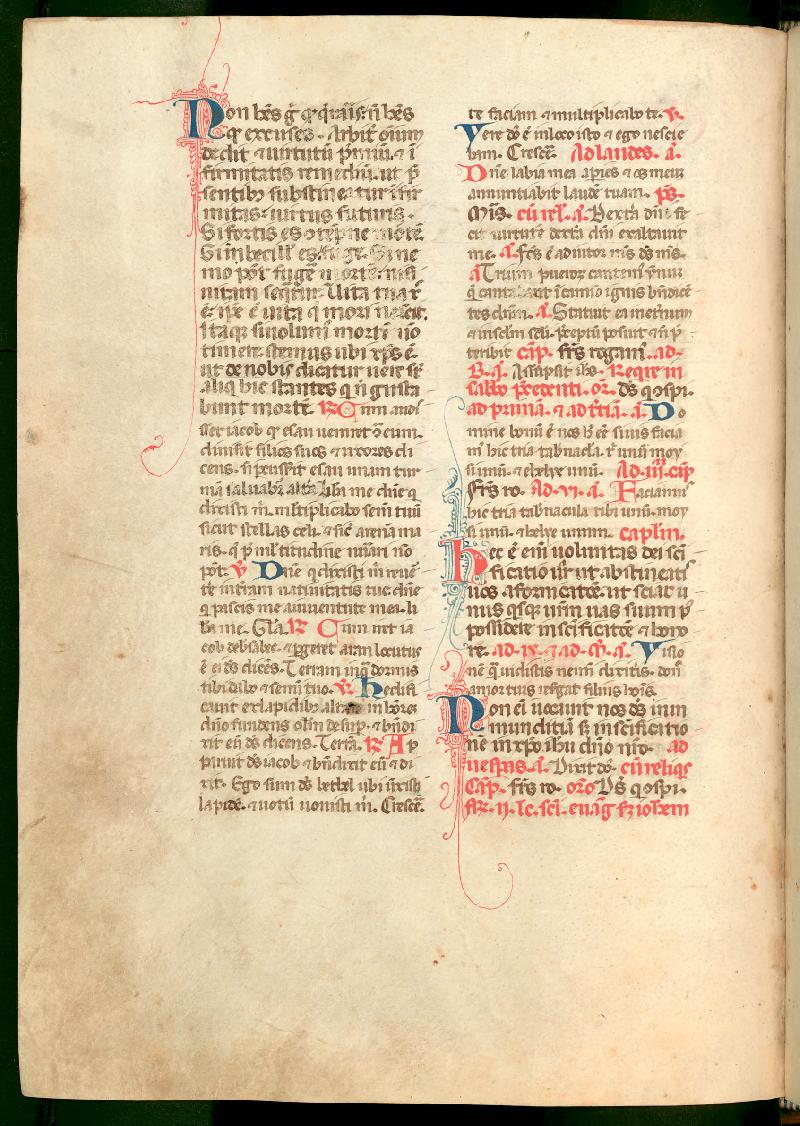 Non hēs g̃ q̃ q̃rais. n̄ hēs
q̃ excuses. Arbit̃ om̄iū
dedit ⁊ uirtutū p̄miū. ⁊ ī
firmitatis remediū. ut p̄
sentibꝫ substineatur ītir
mitas. uirtus futuris.
Si fortis es ⁊ repne mortē.
Si inbecill᷒ es. fuge. Si ne
mo pōt fugē mortē. nisi
uitam seq̄tur. Uita tua xp̄c
ē. ip̄e ē uita q̃ mori nescit.
Itaqꝫ si uolum᷒ mortē nō
timere. stemus ubi xp̄s ē.
ut de nobis dicatur uere st̄
aliq̄ hic stantes q̄ n̄ gusta
bunt mortē. R̃ Cum audi
sset iacob q̃ esau ueniret ꝯ eum.
diuisit filios suos ⁊ uxores di
cens. si ꝑcusserit esau unam tur
mā saluabit᷑ altera libera me dn̄e q̄
dixisti m̄. mltiplicabo sem̄ tuū
sicut stellas celi. ⁊ sic̄ arenā ma
ris. q̄ p̄ ml̄titudine nūari nō
pōt. V̄ Dn̄e q̄ dixisti m̄ reu̾e
re in terram natiuitatis tue dn̄e
q̄ pascis me a iuuentute mea. li
ba me. Gl̄a. R̃ Cum iret ia
cob de bsabee. ⁊ ꝑgeret aran locutus
ē ei ds̄ dicēs. Terram in q̄ dormis
tibi dabo ⁊ semī tuo. V̄ Hedifi
cauit ex lapidibꝫ altare in honorē
dn̄o fundens oleū desup. ⁊ bn̄di
xit eū ds̄ dicens. Terrā. R̃ Ap
paruit ds̄ iacob ⁊ bn̄dixit eū ⁊ di
xit. Ego sum ds̄ bethel ubi unxisti
lapidē. ⁊ uotū uouisti m̄. Crescē.
te faciam ⁊ multiplicabo te. V̄.
Vere ds̄ ē in loco isto ⁊ ego nescie
bam. Crescē. Ad laudes. ā.
Dn̄e labia mea aperies ⁊ os meum
annuntiabit laudē tuam. p̄s.
Mis̄. cū rel̄. ā. Dextra dn̄i fe
cit uirtutē dextā dn̄i exaltauit
me. ā. Fc̄s ē adiutor m̄s ds̄ m̄s.
ā Trium pueror cantem᷒ ymnū
q̄ cantabant ī camīo ignis bn̄dicē
tes dn̄um. ā. Statuit ea ī eternum
⁊ in seclm̄ seli. p̄ceptū posuit ⁊ n̄ p̄
teribit cap̄. fr̄s rogam᷒. ad.
B. ā. Assūpsit ih̄s. Require in
sabb̄o p̄cedenti. or̄. Ds̄ q̄ ꝯspi.
ad primā. ⁊ ad t̄tiā. ā. Do
mine bonū ē nos h̄ ē͂e si uis facia
m᷒ hic tria tab̄nacl̄a. t̄ unū moy
si unū. ⁊ helye unū. Ad. iii. cap̄
Fr̄s ro. Ad. vi. ā. Faciam᷒
hic tria tab̄nacula tibi unū. moy
si unū. ⁊ helye unum. capl̄m.
Hec ē enī uoluntas dei sc̄i
ficatio ur̄a ut abstineatis
uos a fornicatōe. ut sciat u
nusqꝫsqꝫ ur̄m uas suum p̄
possidere in sc̄ificatōe ⁊ hono
re. ad. ix. ⁊ ad. ā. ā. Visio
nē q̄ uidistis nemī dixitis. don̄
a mortuis resgat filius hoīs.
Non eī uocauit nos ds̄ in in
munditiā s̄ in sc̄ificatio
nē in xp̄o ih̄u dn̄o nr̄o. ad
uesp̄as. ā. Dixit ds̄. cū reliqs̄
Cap̄. fr̄s ro. or̄o Ds̄ q̄ ꝯspi.
Fr̄. ii. lc̄. sc̄i. euāg̃ sc̄dm ioh̄em